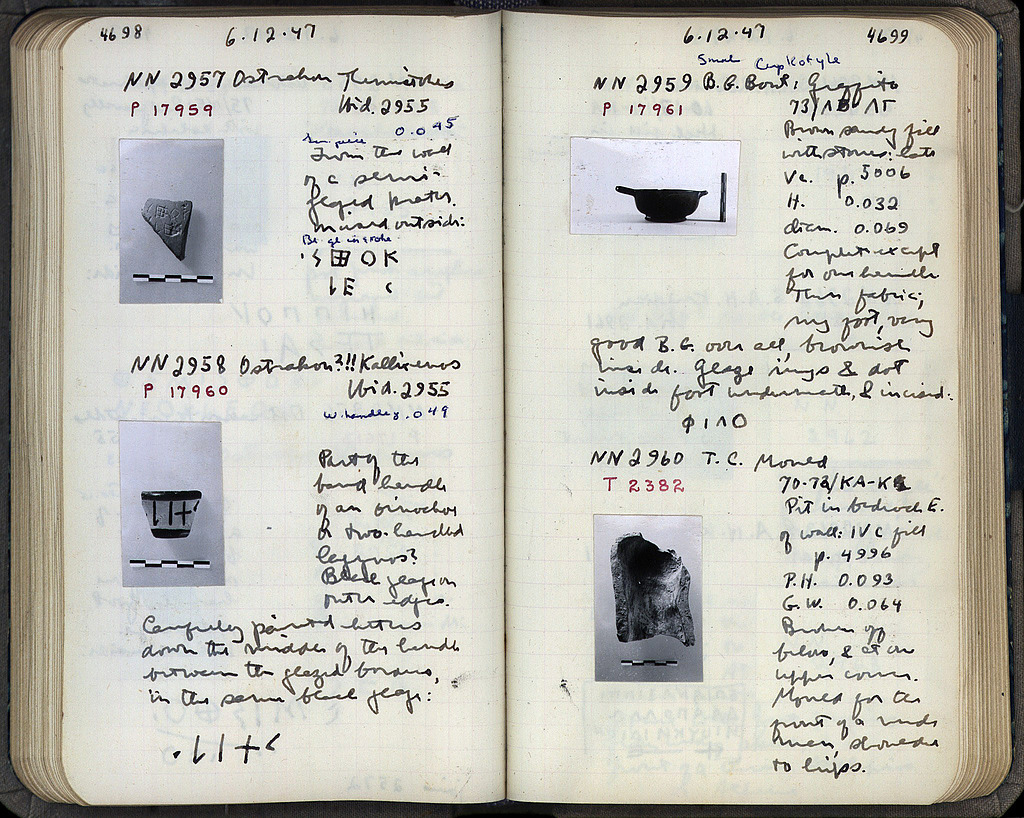 4698
6.12.47
NN 2957 Ostrakon Themistokles
P 17959
Ibid. 2955
0.045
From the wall
of a semi-
glazed krater.
Incised outside:
ΟΚ
NN 2958 Ostrakon?!! Kallixenos
P 17960
Ibid. 2955
W. handle 0.049
Part of the
band handle
of an oinochoe
or two-handled
lagynos?
Black glaze on
outer edges.
Carefully painted letters
down the middle of the handle
between the glazed borders,
in the same black glaze:
6.12.47
4699
Small Cup kotyle
NN 2959 B.G. Bowl: Graffito
P 17961
Brown sandy fill
with stones: late
Vc. p. 5006
H. 0.032
diam. 0.069
Complete except
for one handle
Thin fabric;
ring foot, very
good B.G. over all, brownish
inside. Glaze rings & dot
inside foot underneath, & incised:
NN 2960 T.C. Mould
T 2382
70-72/ΚΑ-Κ
Pit in bedrock E.
of wall: IV c fill
p. 4996
P.H. 0.093
G.W. 0.064
Broken off
below, & at one
upper corner.
Mould for the
front of a nude
man, shoulder
to hips.